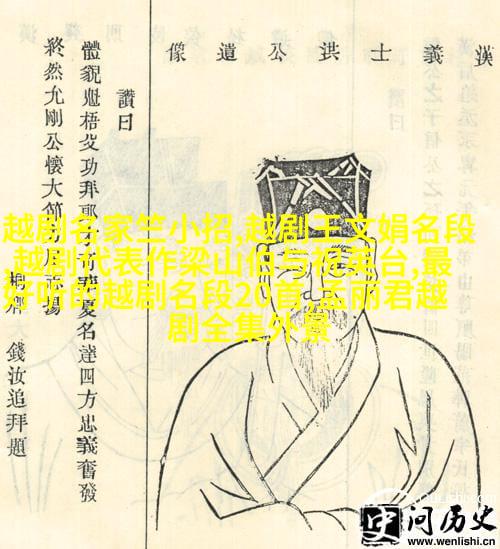 漢義士洪公遺像
讚曰
體貌魁梧
夏名達四方忠義奮發
終然允剛公懷大節
錢汝追拜題
越剧名家竺小招,越剧王文娟名段
,越剧代表作梁山伯与祝英台,最
好听的越剧名段20首,孟丽君越
剧全集外景
问历史
www.wenlishi.cn